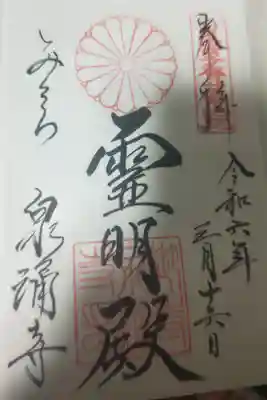 奉拝
令和六年
三月十六日
靈明殿
みてら
泉涌寺